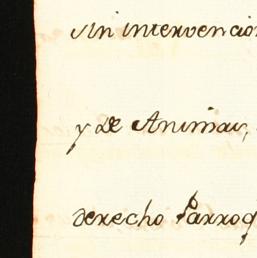 sin intervencion
y de Animas,
derecho Parroq